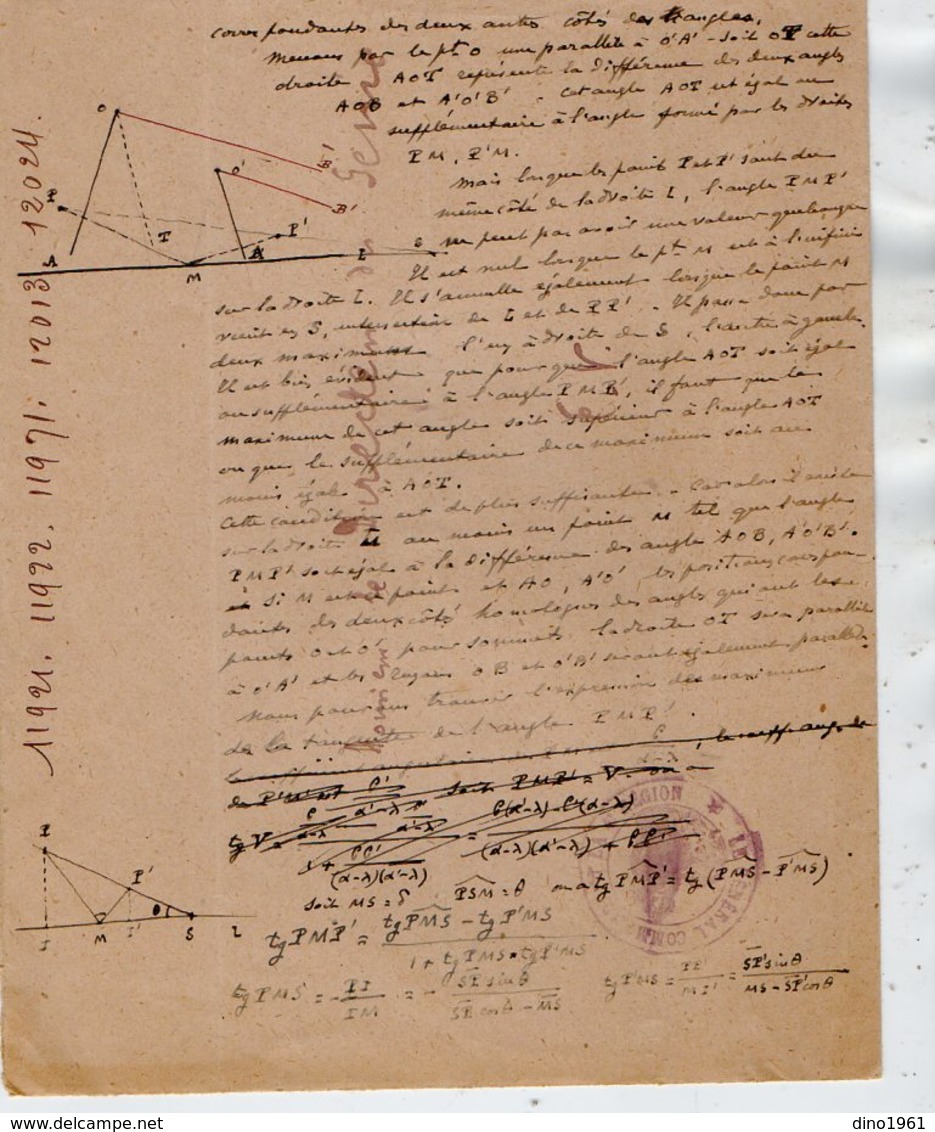 correspondantes des deux autres côtés des triangles,
menons par le pt O une parallèle à O'A' - soit OT cette
droite AOT représente la différence des deux angles
AOB et A'O'B' - cet angle AOT est égal au
supplémentaire à l'angle formé par les droites
PM, P'M.
Mais lorsque les points P et P' sont du
même côté de la droite L, l'angle PMP'
ne peut pas avoir une valeur quelconque
Il est nul lorsque le pt M est à l'infini
sur la droite L. Il s'annulle également lorsque le point M
vient en S, intersection de L et de PP'. Il passe donc par
deux maximums l'un à droite de S, l'autre à gauche.
Il est bien évident que pour que l'angle AOT soit égal
ou supplémentaire à l'angle PMP', il faut que le
maximum de cet angle soit supérieur à l'angle AOT
ou que le supplémentaire de ce maximum soit au
moins égal à AOT.
Cette condition est de plus suffisante. Car alors il existe
sur la droite L au moins un point M tel que l'angle
PMP' soit égal à la différence des angles AOB, A'O'B'.
et si M est ce point et AO, A'O' les positions correspon-
dantes des deux côtés homologues des angles qui ont les
points O et O' pour sommets la droite OT sera parallèle
à O'A' et les rayons OB et O'B' seront également parallèles
Nous pouvons trouver l'expression des maximums
de la tangente de l'angle PMP'.
soit PMP' = V on a
tg V =
(α-λ)(α'-λ)
soit MS = δ PSM = θ on a tg PMP' = tg (PMS - P'MS)
tg PMP' = tg PMS - tg P'MS
1 + tg PMS • tg P'MS
tg PMS = - PI / IM = - SP sin θ / SP cos θ - MS
tg P'MS = P'I' / MI' = SP' sin θ / MS - SP' cos θ
11921. 11922. 11971. 12013. 12024.
O
O'
B'
B'
P
P'
T
A
A'
M
L
S
P
P'
θ
I
M
I'
S
L
LEGION
GENERAL COMM
dino1961